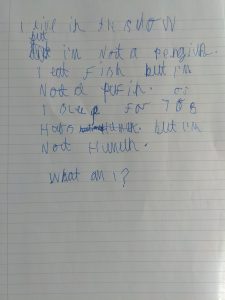 I live in the snow
but
I'm not a pengiuh.
I eat fish but I'm
Not a pufin. or
I sleep for 7 or 8
Hours but I'm
Not Humun.
What am I?